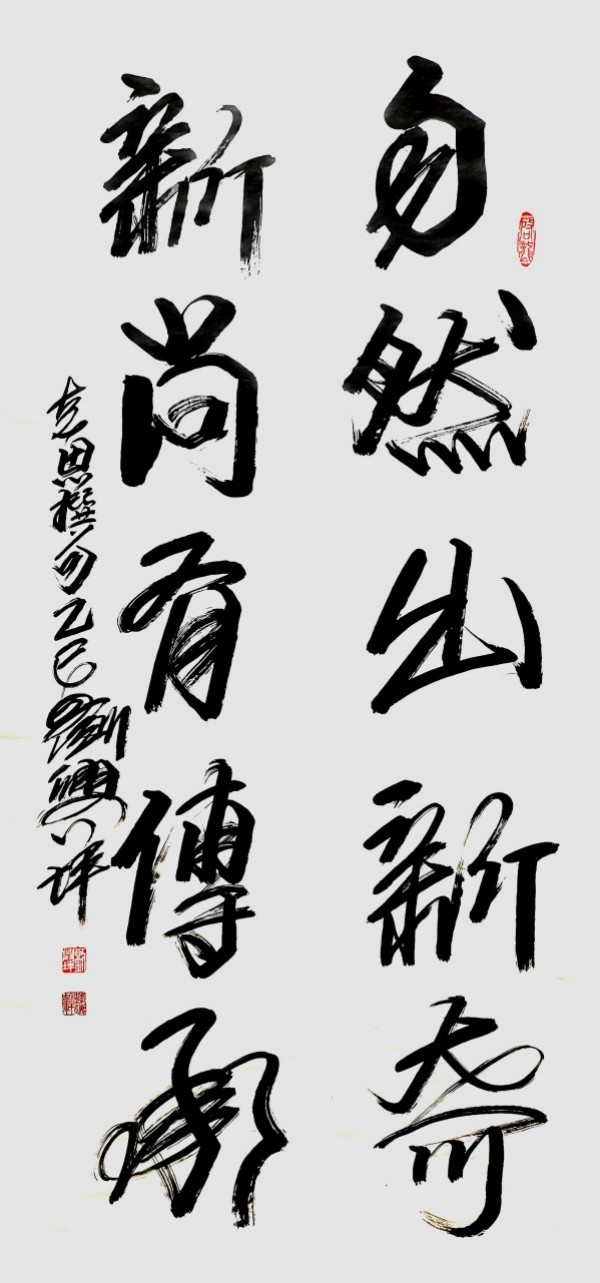 自然出新奇
新尚有傳承
志思撰句乙巳劉興萍